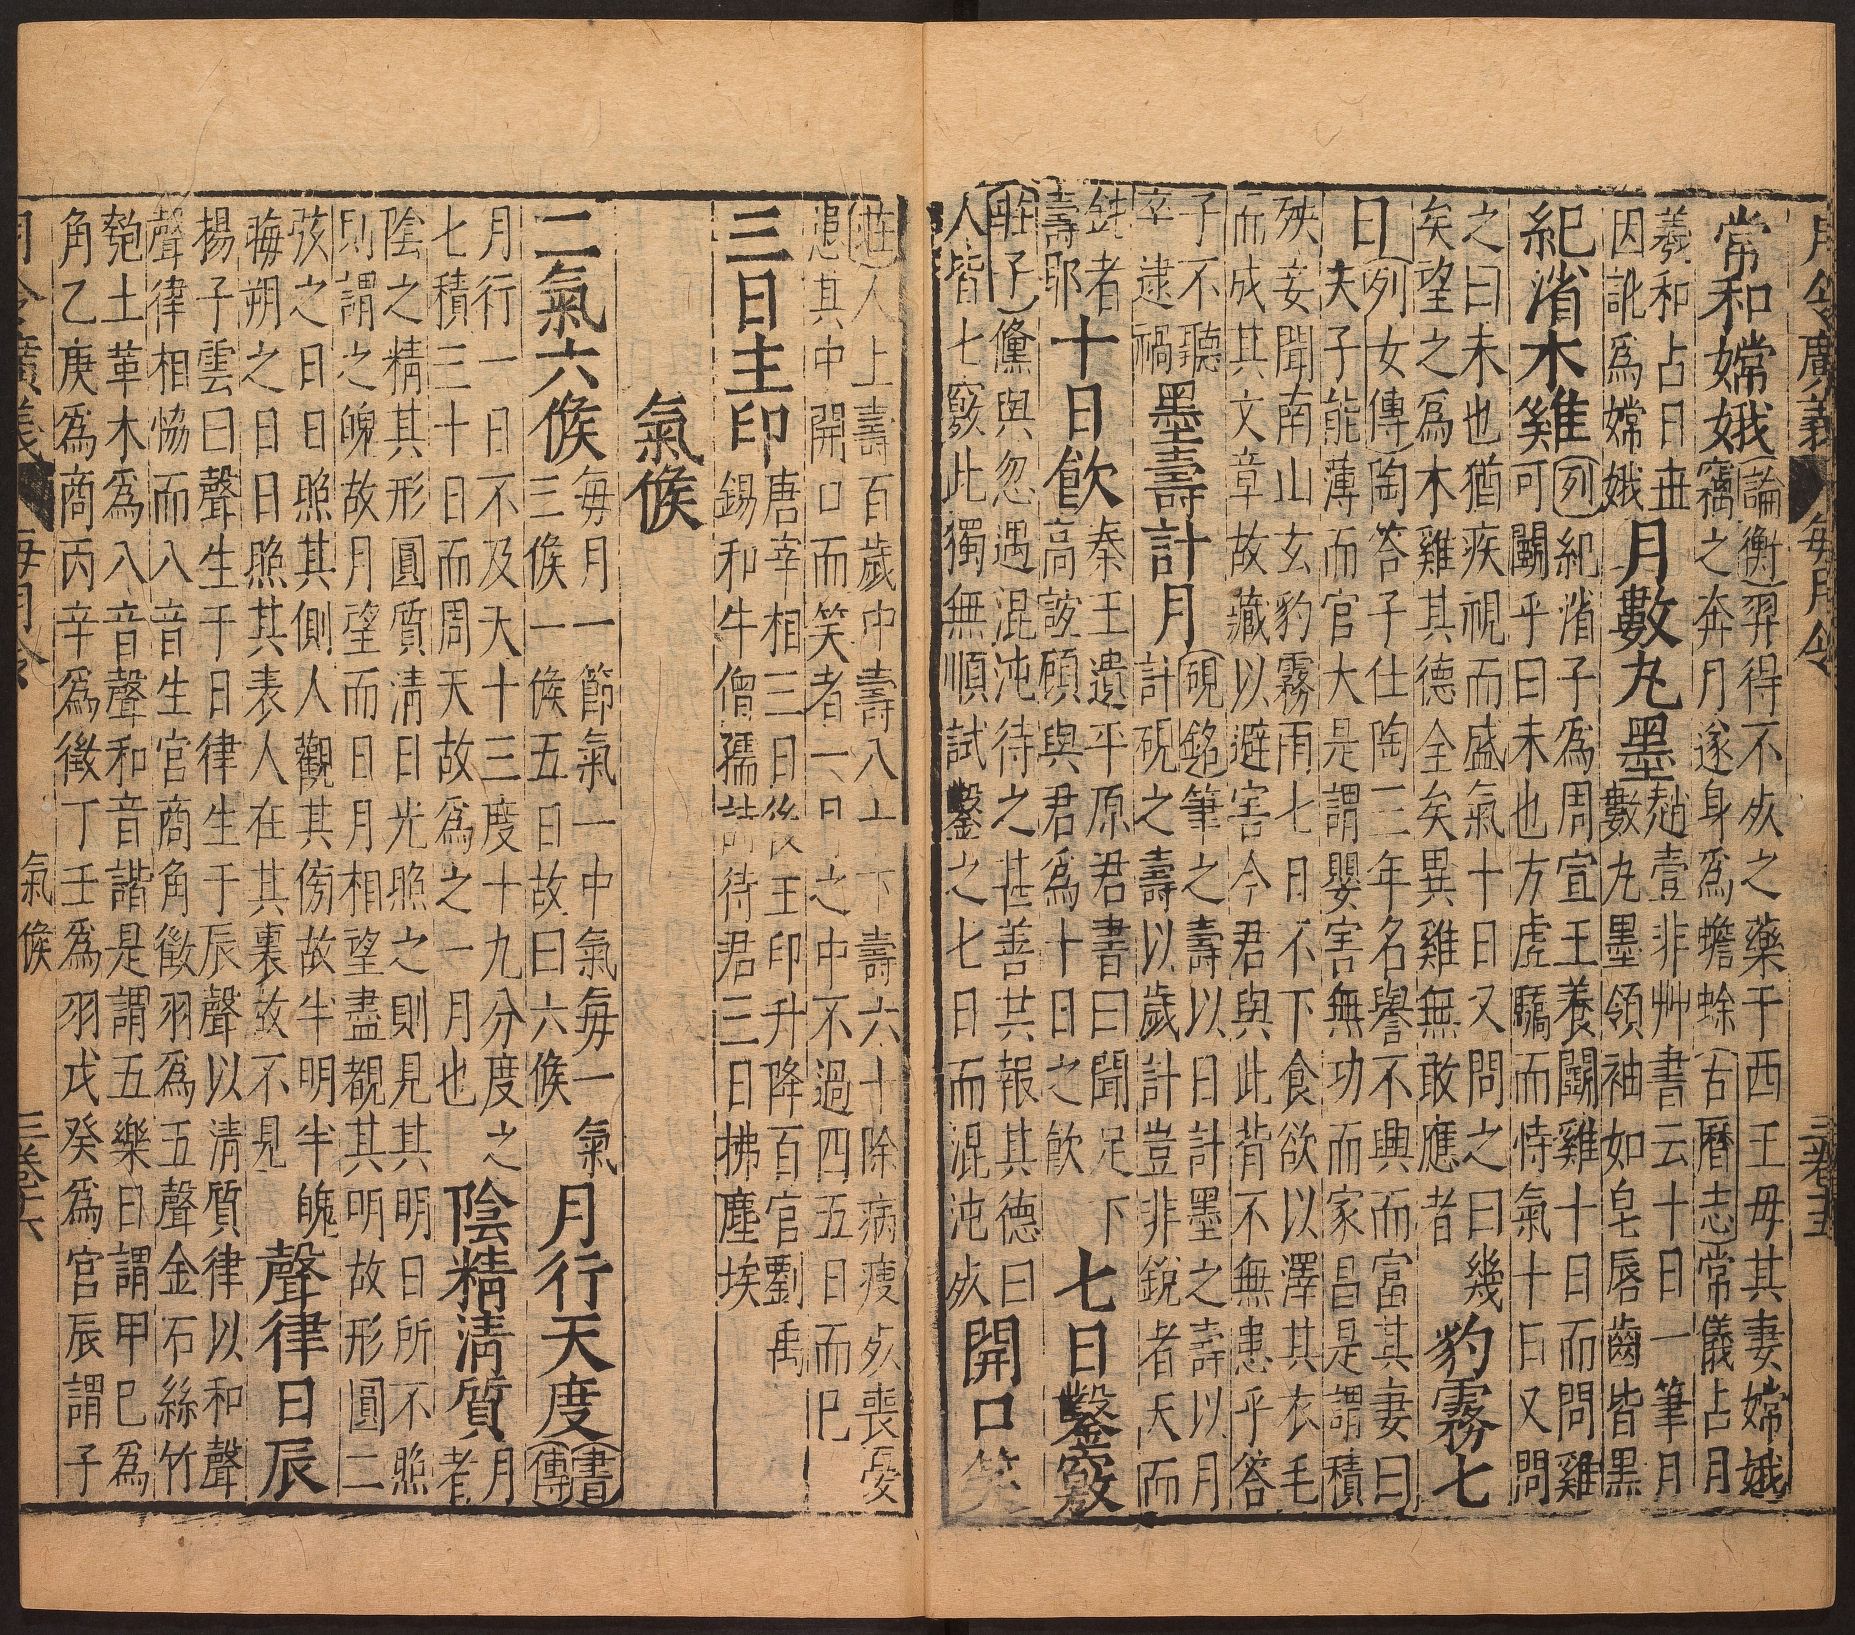 月令廣義 每月令 三卷十五
常和嫦娥
(論衡)羿得不死之藥于西王母其妻嫦娥
竊之奔月遂身為蟾蜍(古曆志)常儀占月
羲和占日丗
因訛為嫦娥
月數丸墨
趙壹非艸書云十日一筆月
數丸墨領袖如皂唇齒皆黑
紀渻木雞
(列)紀渻子為周宣王養鬬雞十日而問雞
可鬬乎曰未也方虛驕而恃氣十日又問
之曰未也猶疾視而盛氣十日又問之曰幾
矣望之為木雞其德全矣異雞無敢應者
豹霧七
日
(列女傳)陶荅子仕陶三年名譽不興而富其妻曰
夫子能薄而官大是謂嬰害無功而家昌是謂積
殃妾聞南山玄豹霧雨七日不下食欲以澤其衣毛
而成其文章故藏以避害今君與此背不無患乎答
子不聽
卒逮禍
墨壽計月
(硯銘)筆之壽以日計墨之壽以月
計硯之壽以歲計豈非銳者夭而
鈍者
壽耶
十日飲
秦王遺平原君書曰聞足下
高誼願與君為十日之飲
七日鑿竅
(莊子)儵與忽遇混沌待之甚善共報其德曰
人皆七竅此獨無順試鑿之七日而混沌死
開口笑
(莊)人上壽百歲中壽八十下壽六十除病瘦死喪憂
患其中開口而笑者一月之中不過四五日而已
三日主印
唐宰相三日後王印升降百官劉禹
錫和牛僧孺詩待君三日拂塵埃
氣候
二氣六候
每月一節氣一中氣每一氣
三候一候五日故曰六候
月行天度
(書
傳)
月行一日不及天十三度十九分度之
七積三十日而周天故為之一月也
陰精清質
月
者
陰之精其形圓質清日光照之則見其明日所不照
則謂之魄故月望而日月相望盡覩其明故形圓二
弦之日日照其側人觀其傍故半明半魄
晦朔之日日照其表人在其裏故不見
聲律日辰
揚子雲曰聲生于日律生于辰聲以清質律以和聲
聲律相恊而八音生宮商角徵羽為五聲金石絲竹
匏土革木為八音聲和音諧是謂五樂日謂甲己為
角乙庚為商丙辛為徵丁壬為羽戊癸為宮辰謂子
月令廣義 每月令 氣候 三卷十六